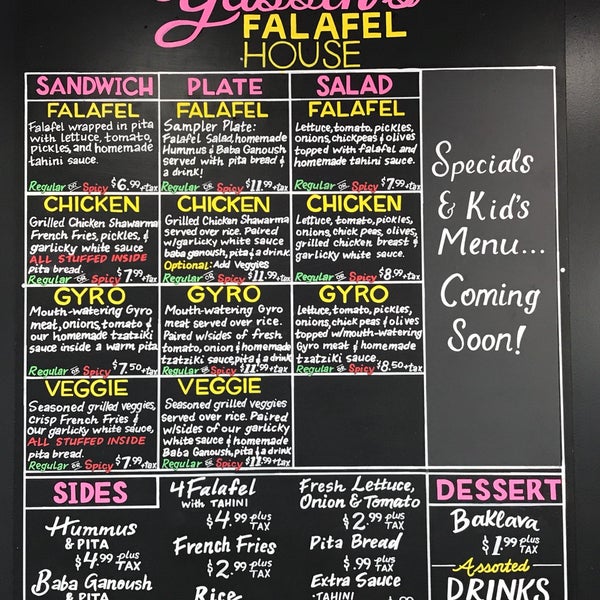 Yassin's
FALAFEL
HOUSE
SANDWICH
FALAFEL
Falafel wrapped in pita
with lettuce, tomato,
pickles, and homemade
tahini sauce.
Regular or Spicy $6.99+tax
CHICKEN
Grilled Chicken Shawarma
French Fries, pickles, &
garlicky white sauce
ALL STUFFED INSIDE
pita bread.
Regular or Spicy $7.99+tax
GYRO
Mouth-watering Gyro
meat, onions, tomato &
our homemade tzatziki
sauce inside a warm pita
Regular or Spicy $7.50+tax
VEGGIE
Seasoned grilled veggies,
crisp French Fries &
our garlicky white sauce,
ALL STUFFED INSIDE
pita bread.
Regular or Spicy $7.99+tax
PLATE
FALAFEL
Sampler Plate:
Falafel Salad, homemade
Hummus & Baba Ganoush
served with pita bread &
a drink!
Regular or Spicy $11.99+tax
CHICKEN
Grilled Chicken Shawarma
served over rice. Paired
w/garlicky white sauce
baba ganoush, pita & a drink
Optional: Add Veggies
Regular or Spicy $11.99+tax
GYRO
Mouth-watering Gyro
meat served over rice.
Paired w/sides of fresh
tomato, onion & homemade
tzatziki sauce, pita & a drink
Regular or Spicy $11.99+tax
VEGGIE
Seasoned grilled veggies
served over rice. Paired
w/sides of our garlicky
white sauce & homemade
Baba Ganoush, pita & a drink
Regular or Spicy $11.99+tax
SALAD
FALAFEL
Lettuce, tomato, pickles,
onions, chickpeas & olives
topped with falafel and
homemade tahini sauce.
Regular or Spicy $7.99+tax
CHICKEN
Lettuce, tomato, pickles,
onions, chick peas, olives,
grilled chicken breast &
garlicky white sauce.
Regular or Spicy $8.99+tax
GYRO
Lettuce, tomato, pickles,
onions, chick peas & olives
topped w/mouth-watering
Gyro meat & homemade
tzatziki sauce.
Regular or Spicy $8.50+tax
Specials
& Kid's
Menu...
Coming
Soon!
SIDES
Hummus
& PITA
$4.99 plus TAX
Baba Ganoush
& PITA
4 Falafel
with TAHINI
$4.99 plus TAX
French Fries
$2.99 plus TAX
Rice
Fresh Lettuce,
Onion & Tomato
$2.99 plus TAX
Pita Bread
$.99 plus TAX
Extra Sauce
·TAHINI
DESSERT
Baklava
$1.99 plus TAX
Assorted
DRINKS